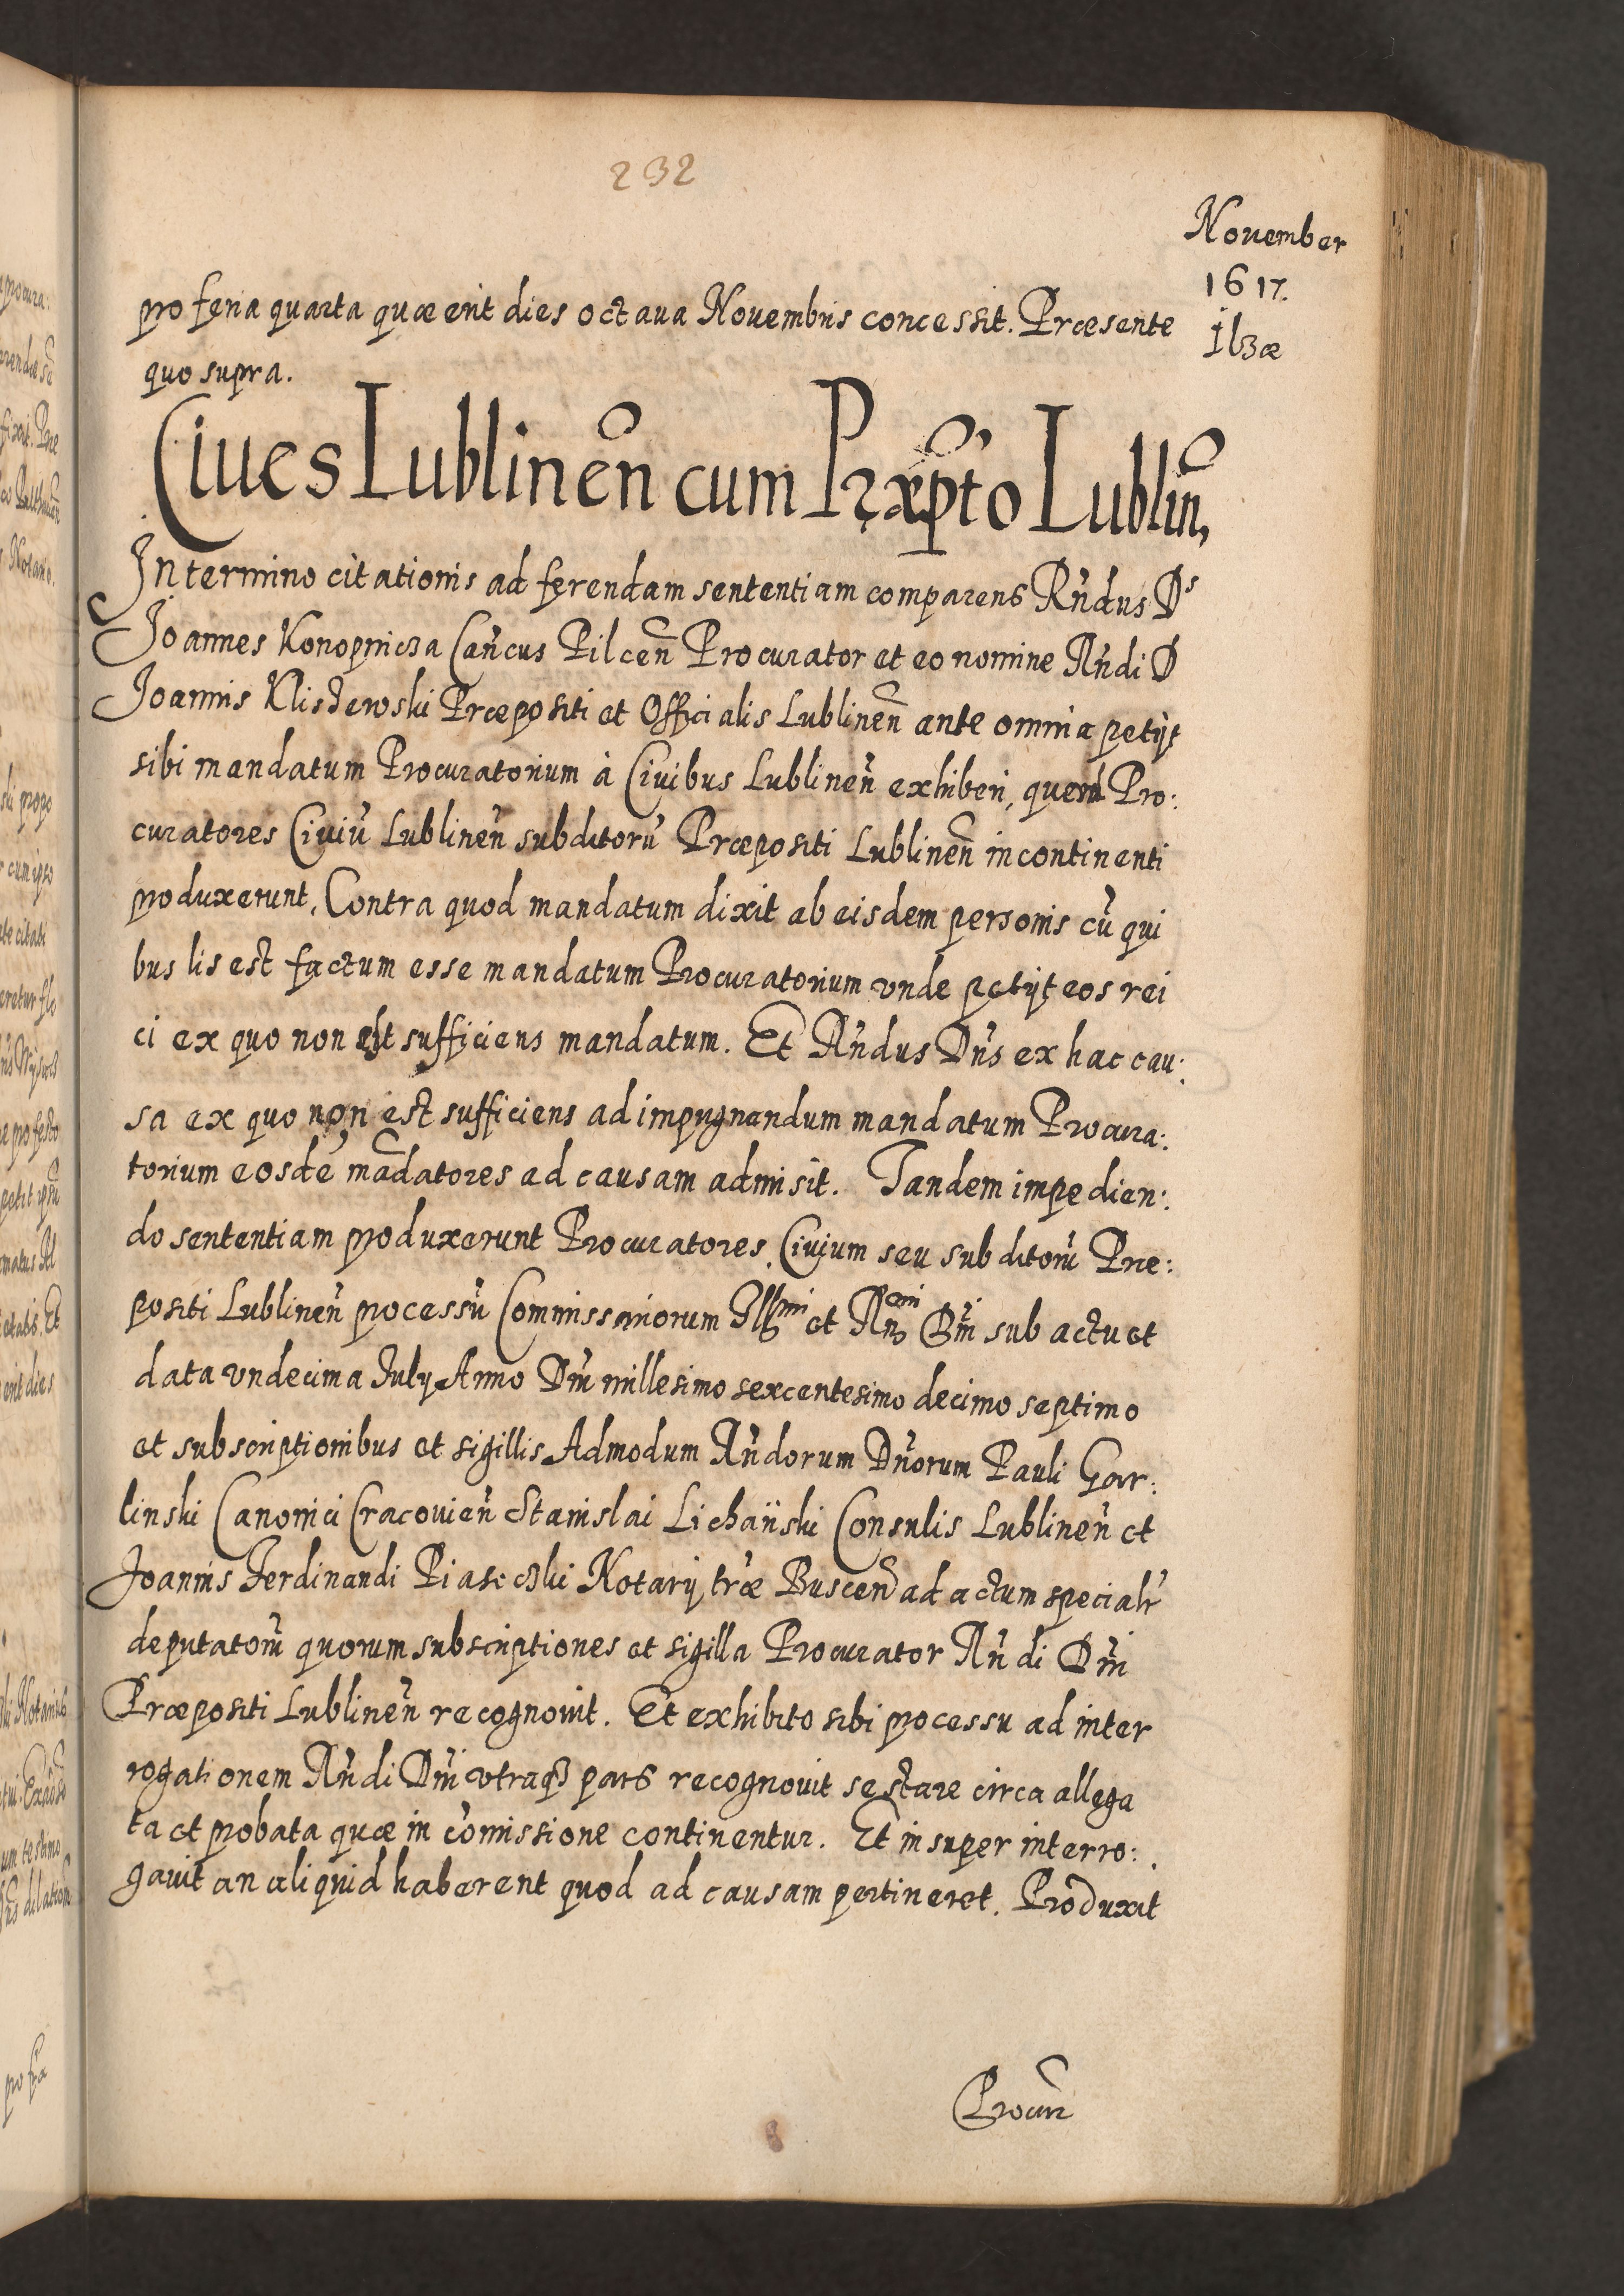 232
November
1617.
Ilzæ
pro feria quarta quæ erit dies octaua Nouembris concessit. Præsente
quo supra.
Ciues Lublineñ cum Præpto Lublin,
In termino citationis ad ferendam sententiam comparens Rñdus Ds
Joannes Konopnicza Cañcus Pilceñ Procurator et eo nomine Rñdi D
Joannis Præpositi et Officialis Lublineñ ante omnia petijt
sibi mandatum Procuratorium à Ciuibus Lublineñ exhiberi, Pro:
curatores Ciuiũ Lublineñ subditorũ Præpositi Lublineñ incontinenti
produxerunt. Contra quod mandatum dixit ab eisdem personis cũ qui
bus lis est factum esse mandatum Procuratorium vnde petijt eos rei
ci ex quo non est sufficiens mandatum. Et Rñdus Dñs ex hac cau:
sa ex quo non est sufficiens ad impugnandum mandatum Procura:
torium eosdẽ mãdatores ad causam admisit. Tandem impedien:
do sententiam produxerunt Procuratores Ciuium seu subditorũ Præ:
positi Lublineñ processũ Commissariorum Illmi et Dñi sub actu et
data vndecima July Anno Dñi millesimo sexcentesimo decimo septimo
et subscriptionibus et sigillis Admodum Rñdorum Dñorum Pauli Gor:
linski Canonici Cracouieñ Stanislai Lichański Consulis Lublineñ et
Joannis Ferdinandi Piaseczki Notarij tr̃æ Busceñ ad actum specialr̃
deputatorũ quorum subscriptiones et sigilla Procurator Rñdi Dñi
Præpositi Lublineñ recognouit. Et exhibito sibi processu ad inter
rogationem Rñdi Dñi vtraqȝ pars recognouit se stare circa allega
ta et probata quæ in cõmissione continentur. Et insuper interro:
gauit an aliquid haberent quod ad causam pertineret. Produxit
Procur̃